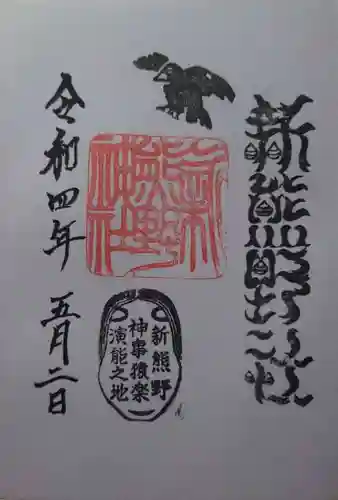 新熊野神社
令和四年 五月二日
新熊野
神事猿楽
演能之地